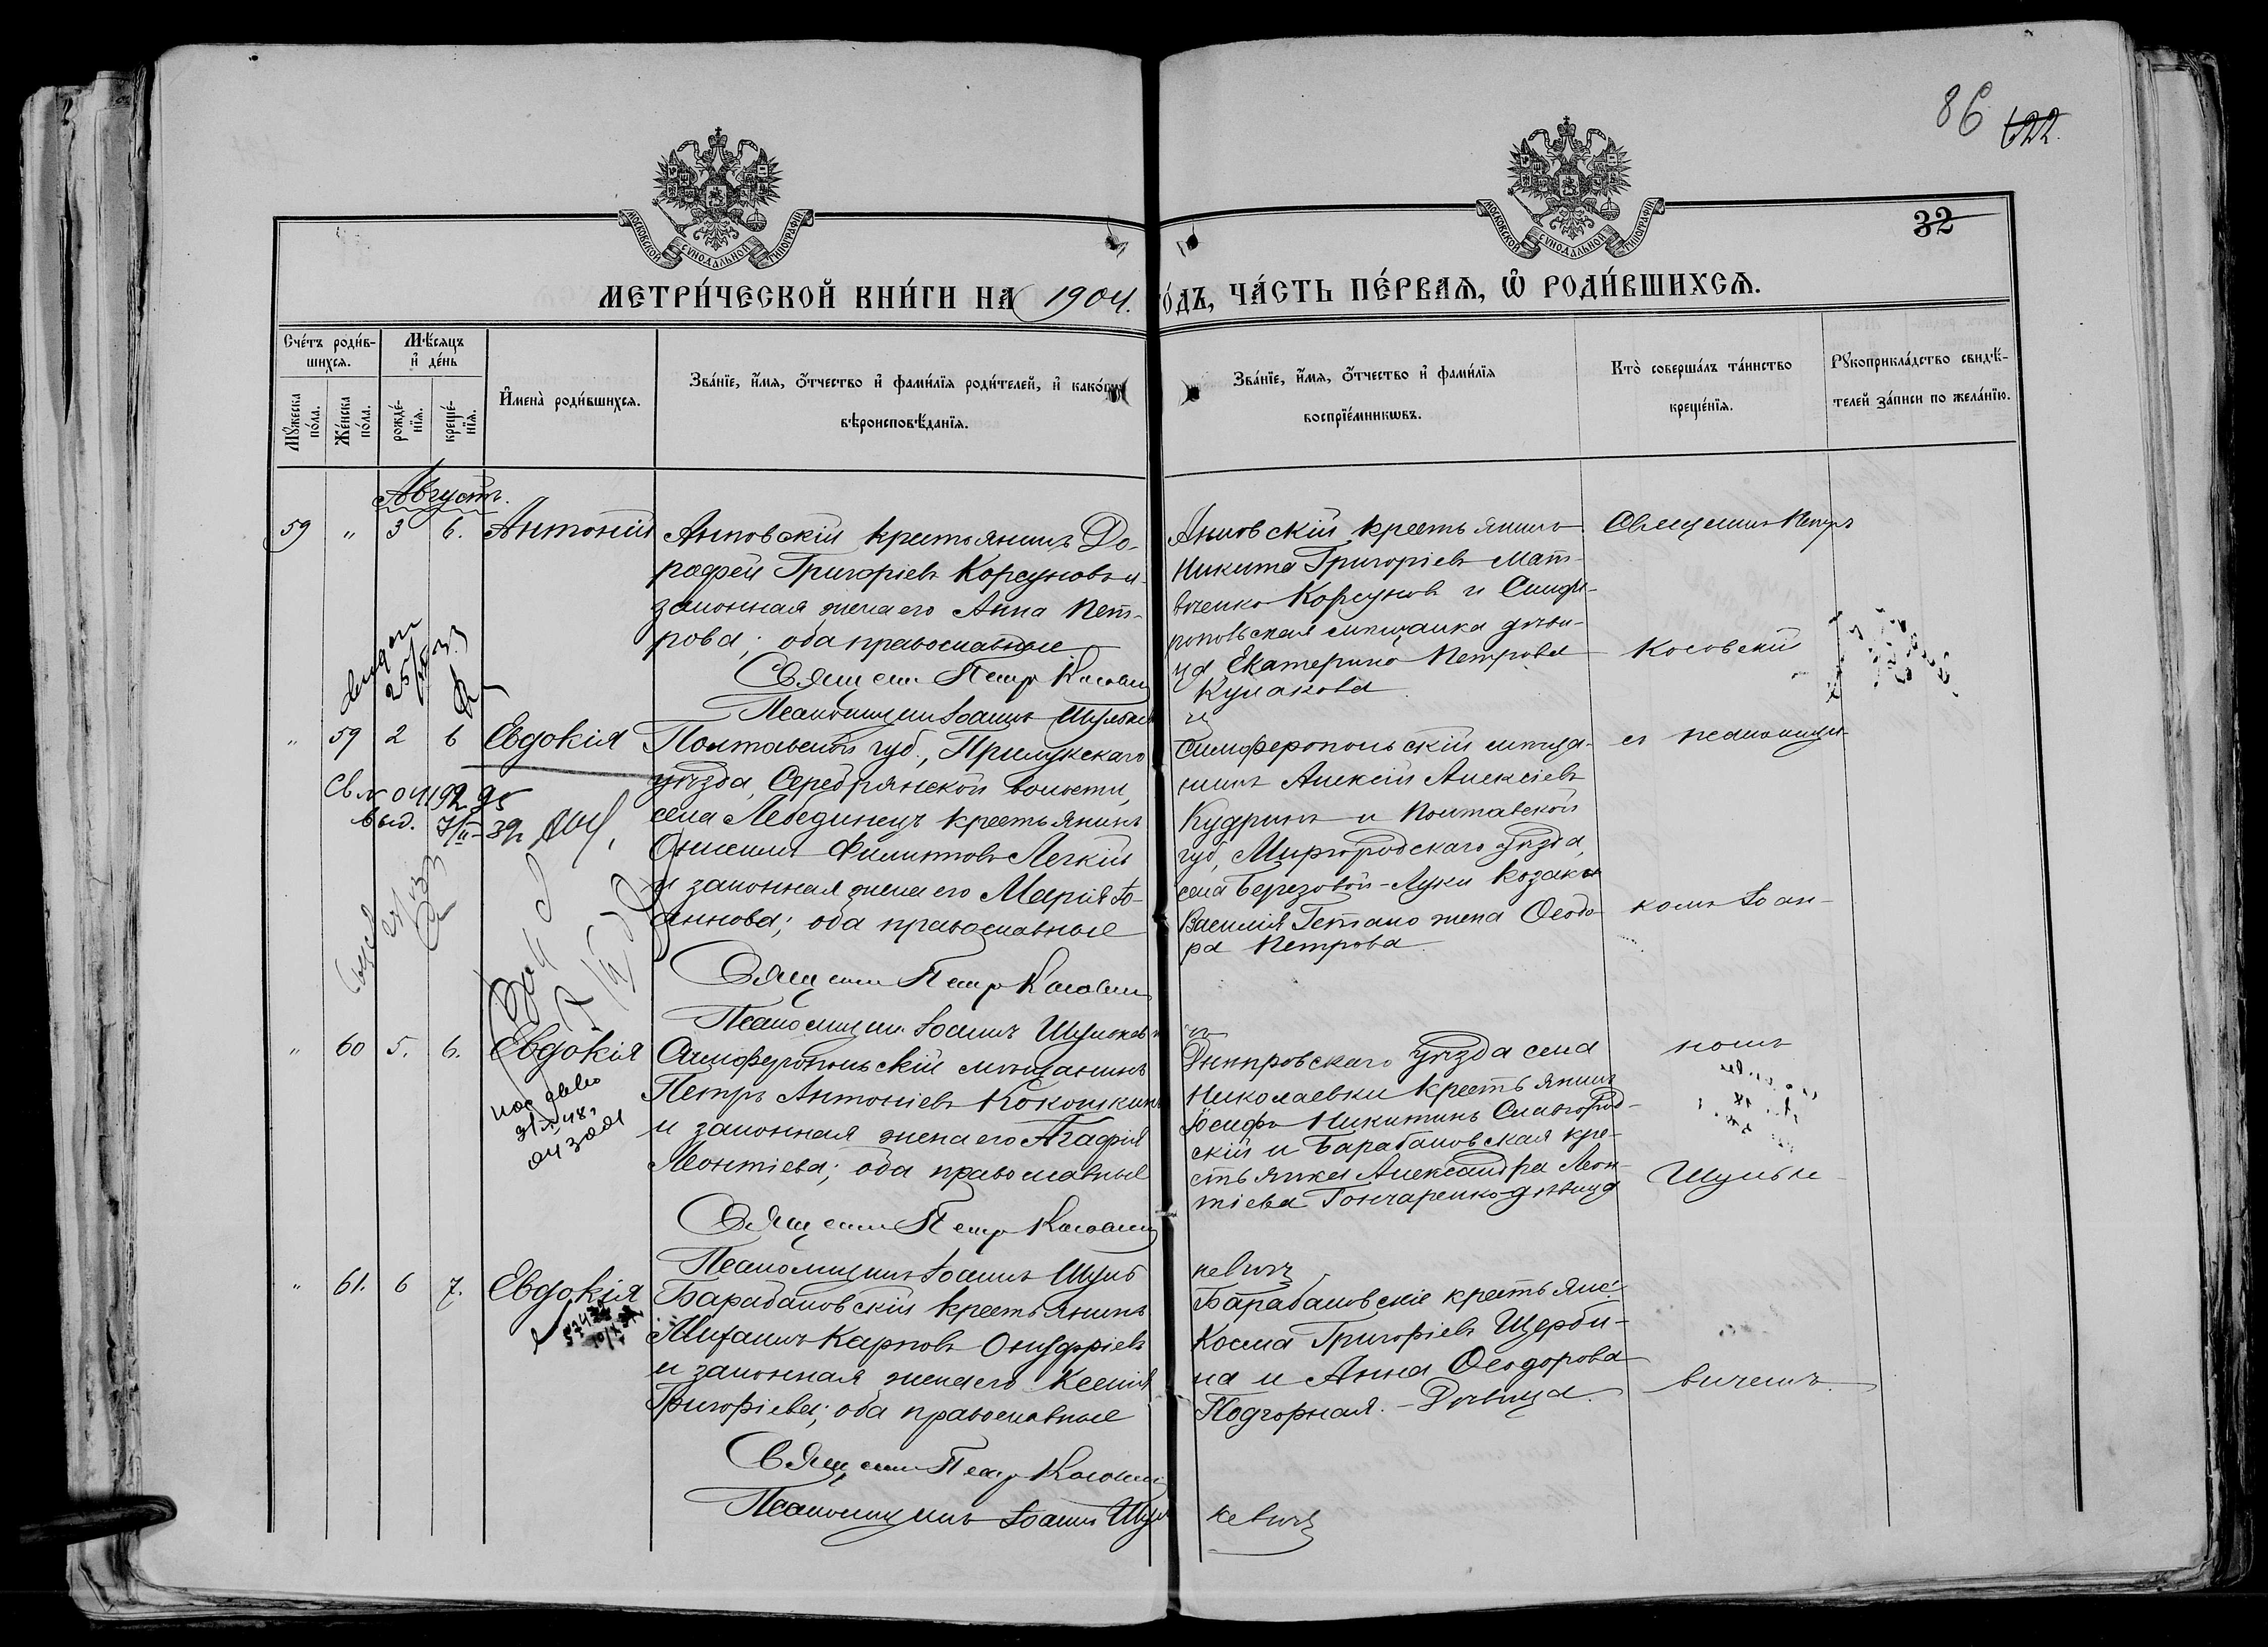 86 122.
МОСКОВСКОЙ СѴНОДАЛЬНОЙ ТИПОГРАФІИ
МОСКОВСКОЙ СѴНОДАЛЬНОЙ ТИПОГРАФІИ
32
МЕТРИ́ЧЕСКОЙ КНИ́ГИ НА 1904. ГО́ДЪ, ЧА́СТЬ ПЕ́РВАЯ, Ѡ҆ РОДИ́ВШИХСЯ.
Сче́тъ роди́в-
шихся.
Мѣ́сяцъ
и҆ де́нь
Мꙋжеска по́ла.
Же́нска по́ла.
рожде́-
нїя.
креще́-
нїя.
И҆мена̀ роди́вшихся.
Зва́нїе, и҆́мя, ѻ҆́тчество и҆ фами́лїя роди́телей, и҆ како́гѡ
вѣроисповѣ́данїя.
Зва́нїе, и҆́мя, ѻ҆́тчество и҆ фами́лїя
воспрїе́мникѡвъ.
Кто̀ соверша́лъ та́инство
креще́нїя.
Рꙋкоприкла́дство свидѣ́-
телей за́писи по жела́нїю.
Августъ.
59 " 3 6. Антоній
Ановскій крестьянинъ До-
рофей Григоріевъ Корсуновъ и
законная жена его Анна Пет-
рова; оба православные
Священ. Петръ Косовскій
Псаломщикъ Іоаннъ Шулькевичъ
Ановскій крестьянинъ
Никита Григоріевъ Мат-
віенко Корсуновъ и Симфе-
ропольская мѣщанка дѣви-
ца Екатерина Петрова
Кулакова
Священникъ Петръ
Косовскій
" 59 2 6 Евдокія
Св № 04192 95
выд.
Полтавской губ., Прилукскаго
уѣзда, Серебрянской волости,
села Лебединецъ крестьянинъ
Онисимъ Филипповъ Легкій
и законная жена его Марія Іо-
аннова; оба православные
Священ. Петръ Косовскій
Псаломщикъ Іоаннъ Шулькевичъ
Симферопольскій мѣща-
нинъ Алексій Алексіевъ
Кудринъ и Полтавской
губ, Миргородскаго уѣзда,
села Березовой-Луки козака
Василія Гетмано жена Ѳеодо-
ра Петрова
съ псаломщи-
комъ Іоан-
" 60 5. 6. Евдокія
Симферопольскій мѣщанинъ
Петръ Антоніевъ Кокошкинъ
и законная жена его Агафія
Леонтіева; оба православные
Священ. Петръ Косовскій
Псаломщикъ Іоаннъ Шуль
кевичъ
Днѣпровскаго уѣзда села
Николаевки крестьянинъ
Іосифъ Никитинъ Славгород-
скій и Барабановская кре-
стьянка Александра Леон-
тіева Гончаренко дѣвица
номъ
Шульке-
" 61. 6 7. Евдокія
Барабановскій крестьянинъ
Михаилъ Карповъ Онуфріевъ
и законная жена его Ксенія
Григоріева; оба православные
Священ. Петръ Косовскій
Псаломщикъ Іоаннъ Шуль
кевичъ
Барабановскіе крестьяне:
Косма Григоріевъ Щерби-
на и Анна Ѳеодорова
Подгорная. - Дѣвица.
вичемъ.